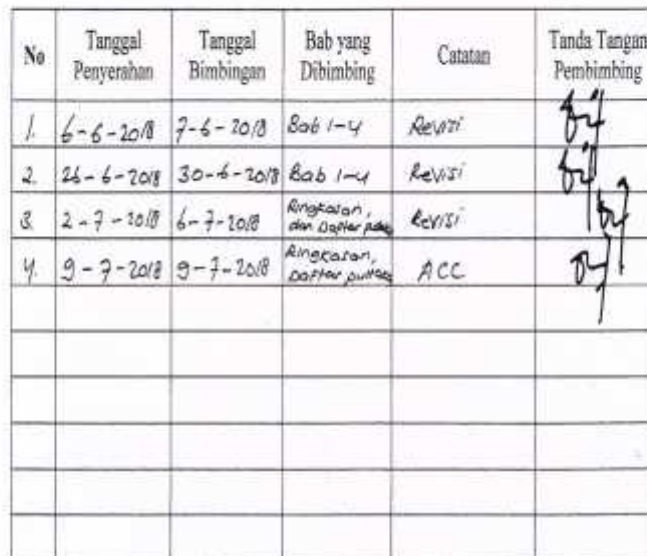 No Tanggal Penyerahan Tanggal Bimbingan Bab yang Dibimbing Catatan Tanda Tangan Pembimbing
1. 6-6-2018 7-6-2018 Bab 1-4 Revisi
2. 26-6-2018 30-6-2018 Bab 1-4 Revisi
3. 2-7-2018 6-7-2018 Ringkasan, dan Daftar Revisi
4. 9-7-2018 9-7-2018 Ringkasan, Daftar pustaka ACC